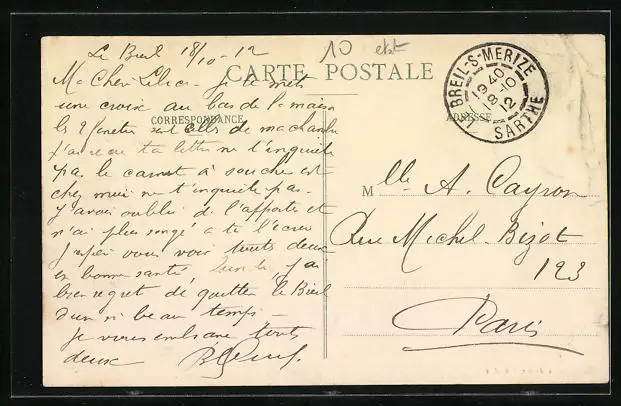 Le Breil 18/10-12
10
CARTE POSTALE
CORRESPONDANCE
ADRESSE
LE BREIL-S-MERIZE
19 40
18-10
12
SARTHE
Ma Chère je te mets
une croix au bas de la maison
les 2 fenetres sont celles de ma chambre
J'ai reçu ta lettre ne t'inquiete
pas le carnet à souche est
chez moi ne t'inquiete pas.
J'avais oublié de l'apporter et
n'ai plus songé a te l'ecrire
J'espère vous voir toutes deux
en bonne santé, j'ai
bien regret de quitter le Breil
d'un si beau temps -
Je vous embrasse toutes
deux
Mlle A. Cayron
Rue Michel-Bizot
123
Paris